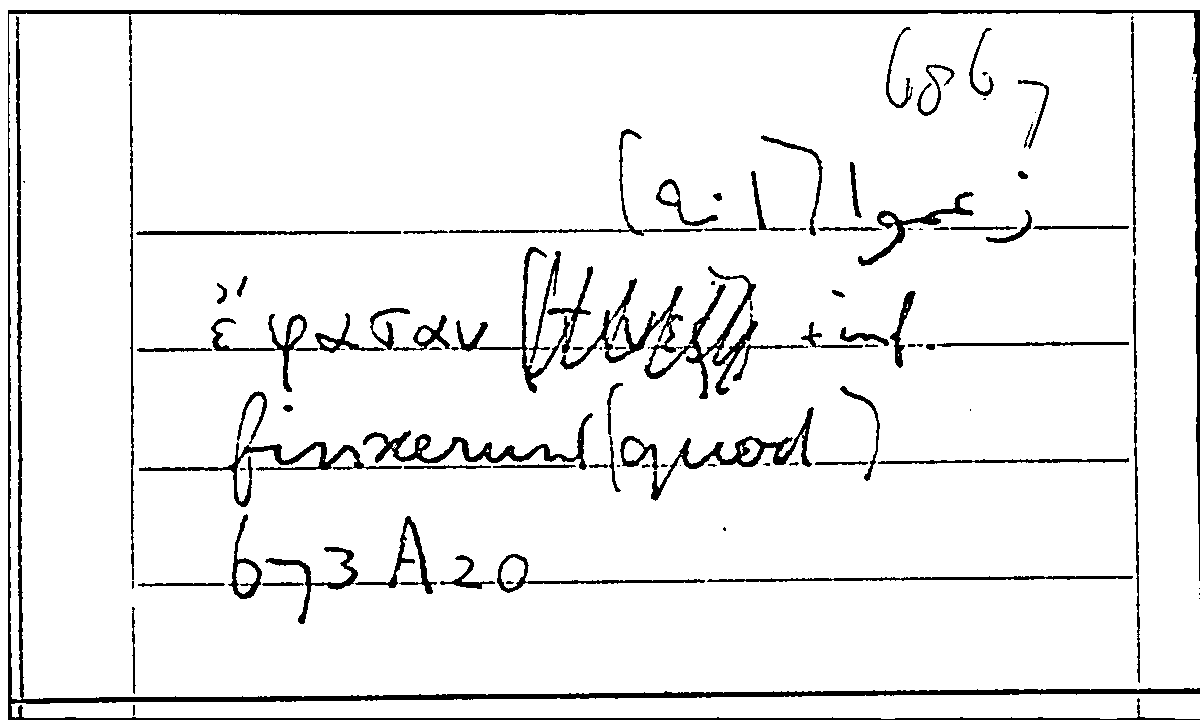 6867
زعموا (ان)
ἔφασαν + inf.
finxerunt (quod)
673 A 20